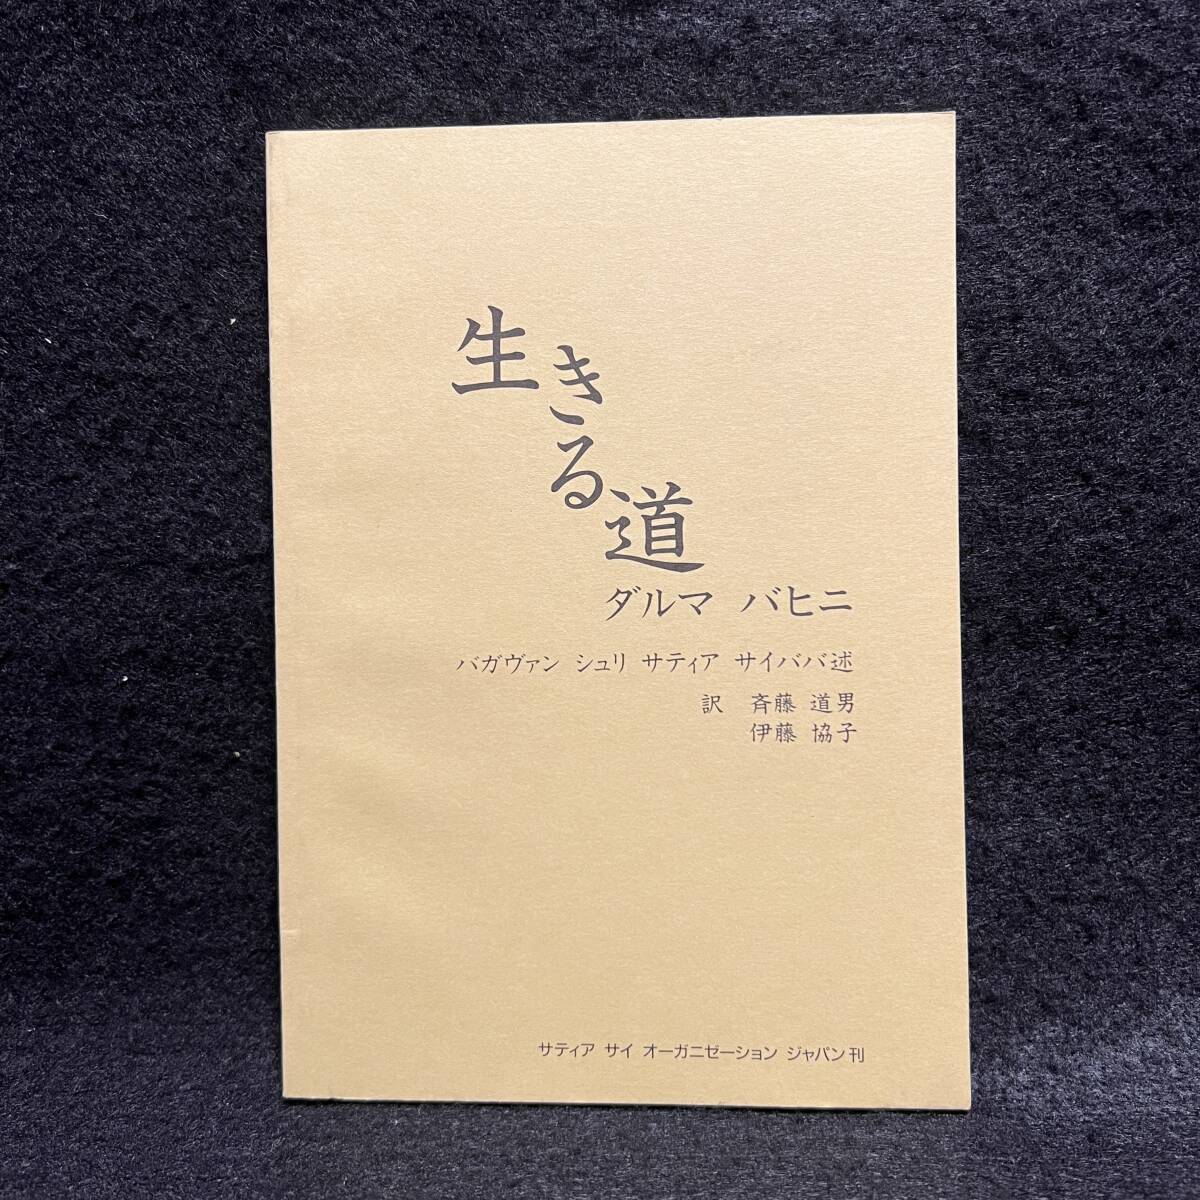 生きる道
ダルマ バヒニ
バガヴァン シュリ サティア サイババ述
訳 斉藤 道男
伊藤 協子
サティア サイ オーガニゼーション ジャパン刊